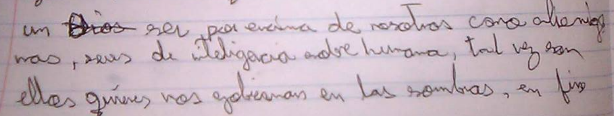 un Dios ser por encima de nosotros como alieníge
nas, seres de inteligencia sobre humana, tal vez son
ellos quienes nos gobiernan en las sombras, en fin